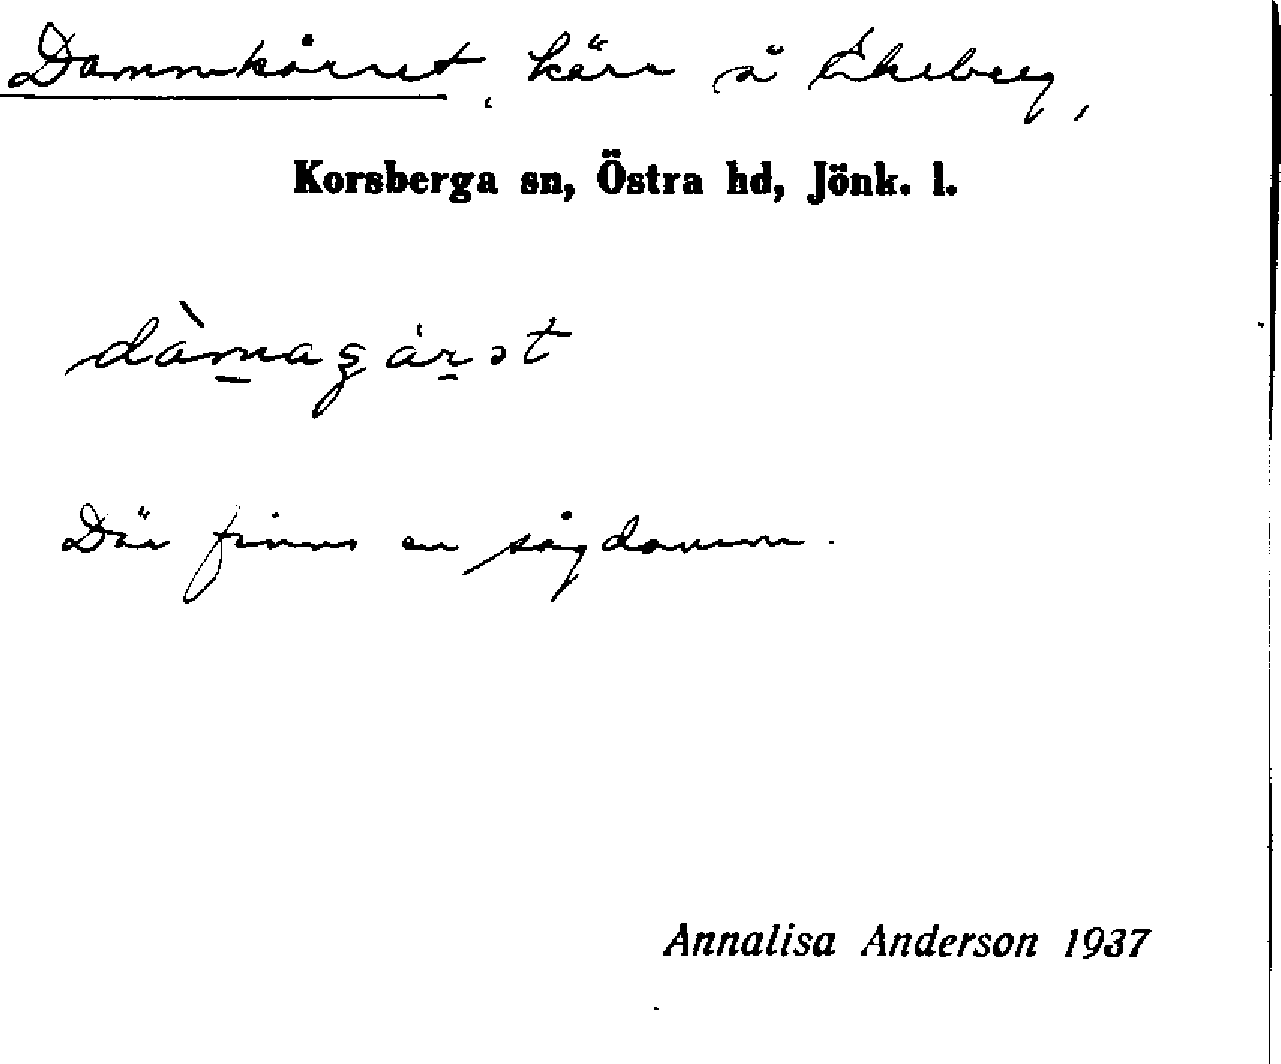 Dammkärret, kärr å Ekeberg,
Korsberga sn, Östra hd, Jönk. l.
Där finns en sågdamm.
Annalisa Anderson 1937